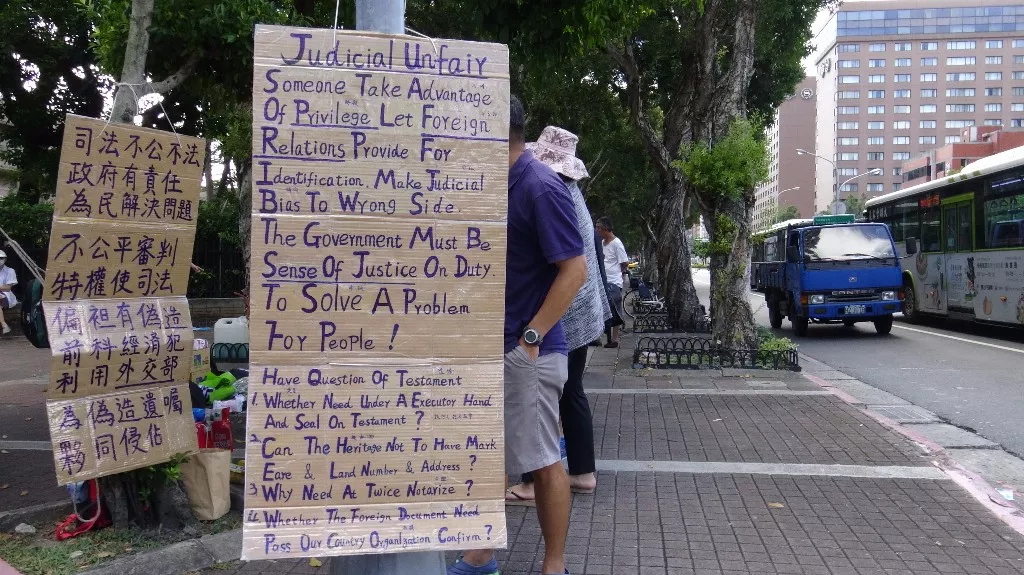 司法不公不法
政府有責任
為民解決問題
不公平審判
特權使司法
偏袒有偽造
前科經濟犯
利用外交部
為偽造遺囑
夥同侵佔
Judicial Unfair
Someone Take Advantage
Of Privilege Let Foreign
Relations Provide For
Identification. Make Judicial
Bias To Wrong Side.
The Government Must Be
Sense Of Justice On Duty.
To Solve A Problem
For People !
Have Question Of Testament
1. Whether Need Under A Executor Hand
And Seal On Testament ?
2. Can The Heritage Not To Have Mark
Eare & Land Number & Address ?
3 Why Need At Twice Notarize ?
4. Whether The Foreign Document Need
Pass Our Country Organization Confirm ?